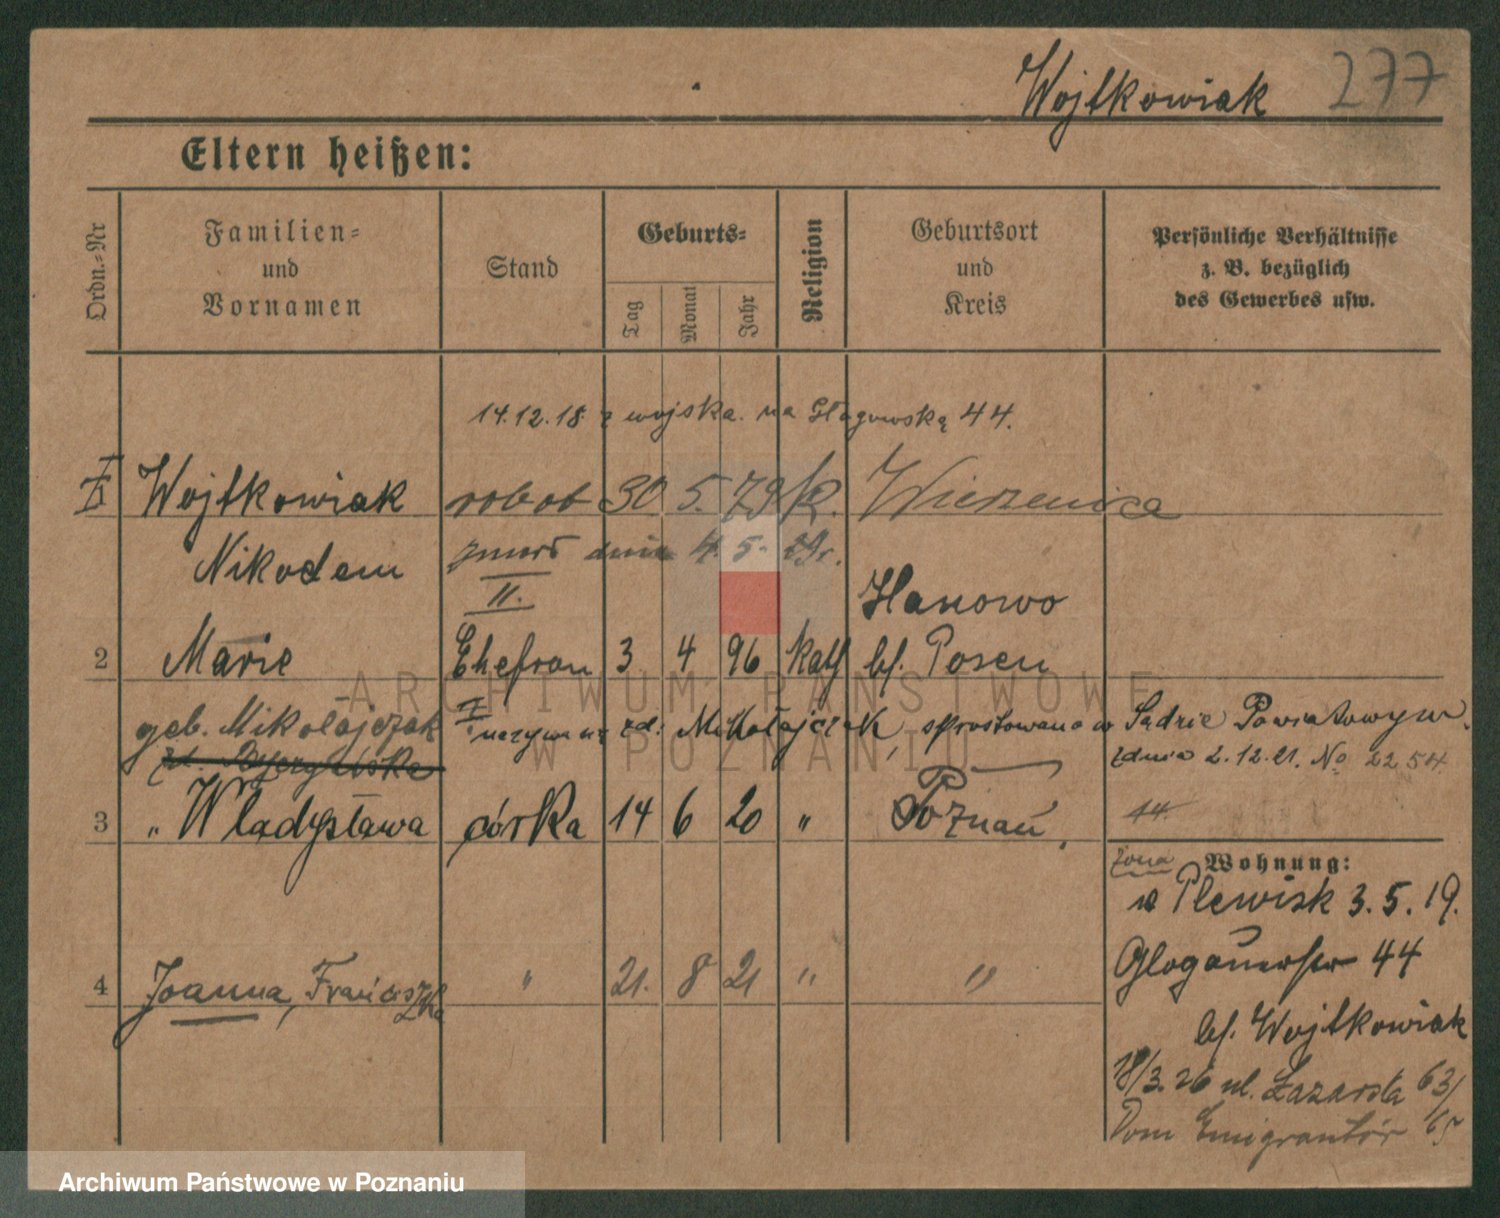 Wojtkowiak 277
Eltern heißen:
Ordn.-Nr
Familien- und Vornamen
Stand
Geburts-
Tag
Monat
Jahr
Religion
Geburtsort und Kreis
Persönliche Verhältnisse
z. B. bezüglich
des Gewerbes usw.
14.12.18. z wojska. na Głogowską 44.
Wojtkowiak robot 30 5. 79 k. Wierzenica
Nikodem zmarł dnia 4. 5. 29r.
II. Hanowo
2 Marie Ehefrau 3 4 96 kath bf. Posen
geb. Mikołajczak nazywa się zd: Mikołajczak, sprostowano w Sądzie Powiatowym.
zdnia 2.12.21. No 2254.
3 " Władysława córka 14 6 20 " Poznań,
44.
żona Wohnung:
w Plewisk 3.5.19.
4 Joanna, Franciszka " 21. 8 21 " "
Glogauerstr 44
bf. Wojtkowiak
18/3.26 ul. Łazarska 63/65
Dom Emigrantów
ARCHIWUM PAŃSTWOWE
W POZNANIU
Archiwum Państwowe w Poznaniu